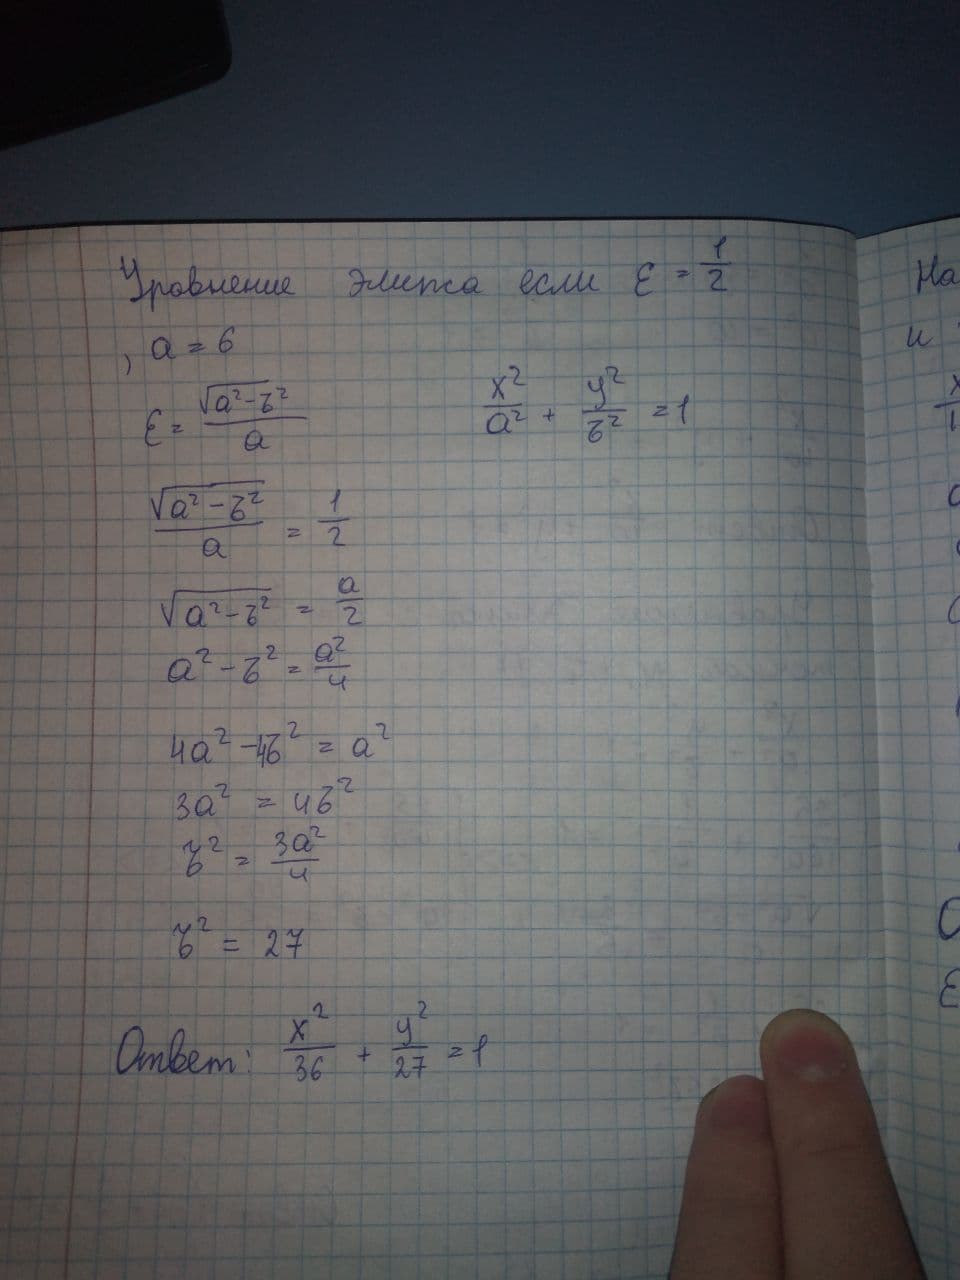 Уровнение элипса если ε = 1/2
, a = 6
ε = √(a² - б²)/a
x²/a² + y²/б² = 1
√(a² - б²)/a = 1/2
√(a² - б²) = a/2
a² - б² = a²/4
4a² - 4б² = a²
3a² = 4б²
б² = 3a²/4
б² = 27
Ответ: x²/36 + y²/27 = 1
На
и